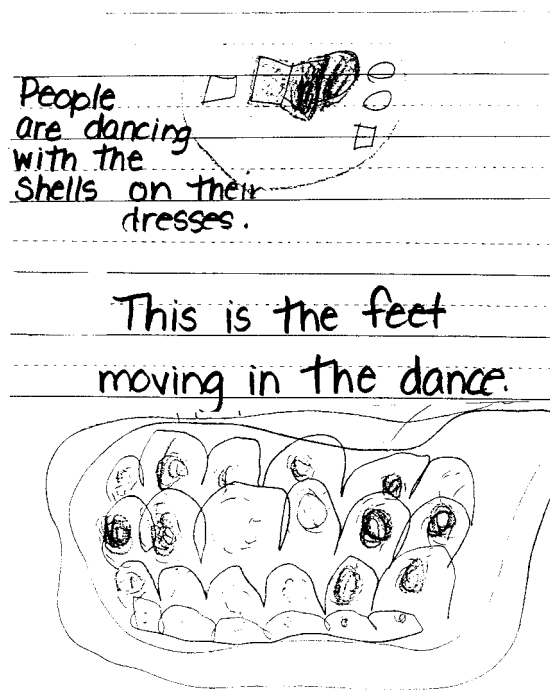 People
are dancing
with the
Shells on their
dresses.
This is the feet
moving in the dance.